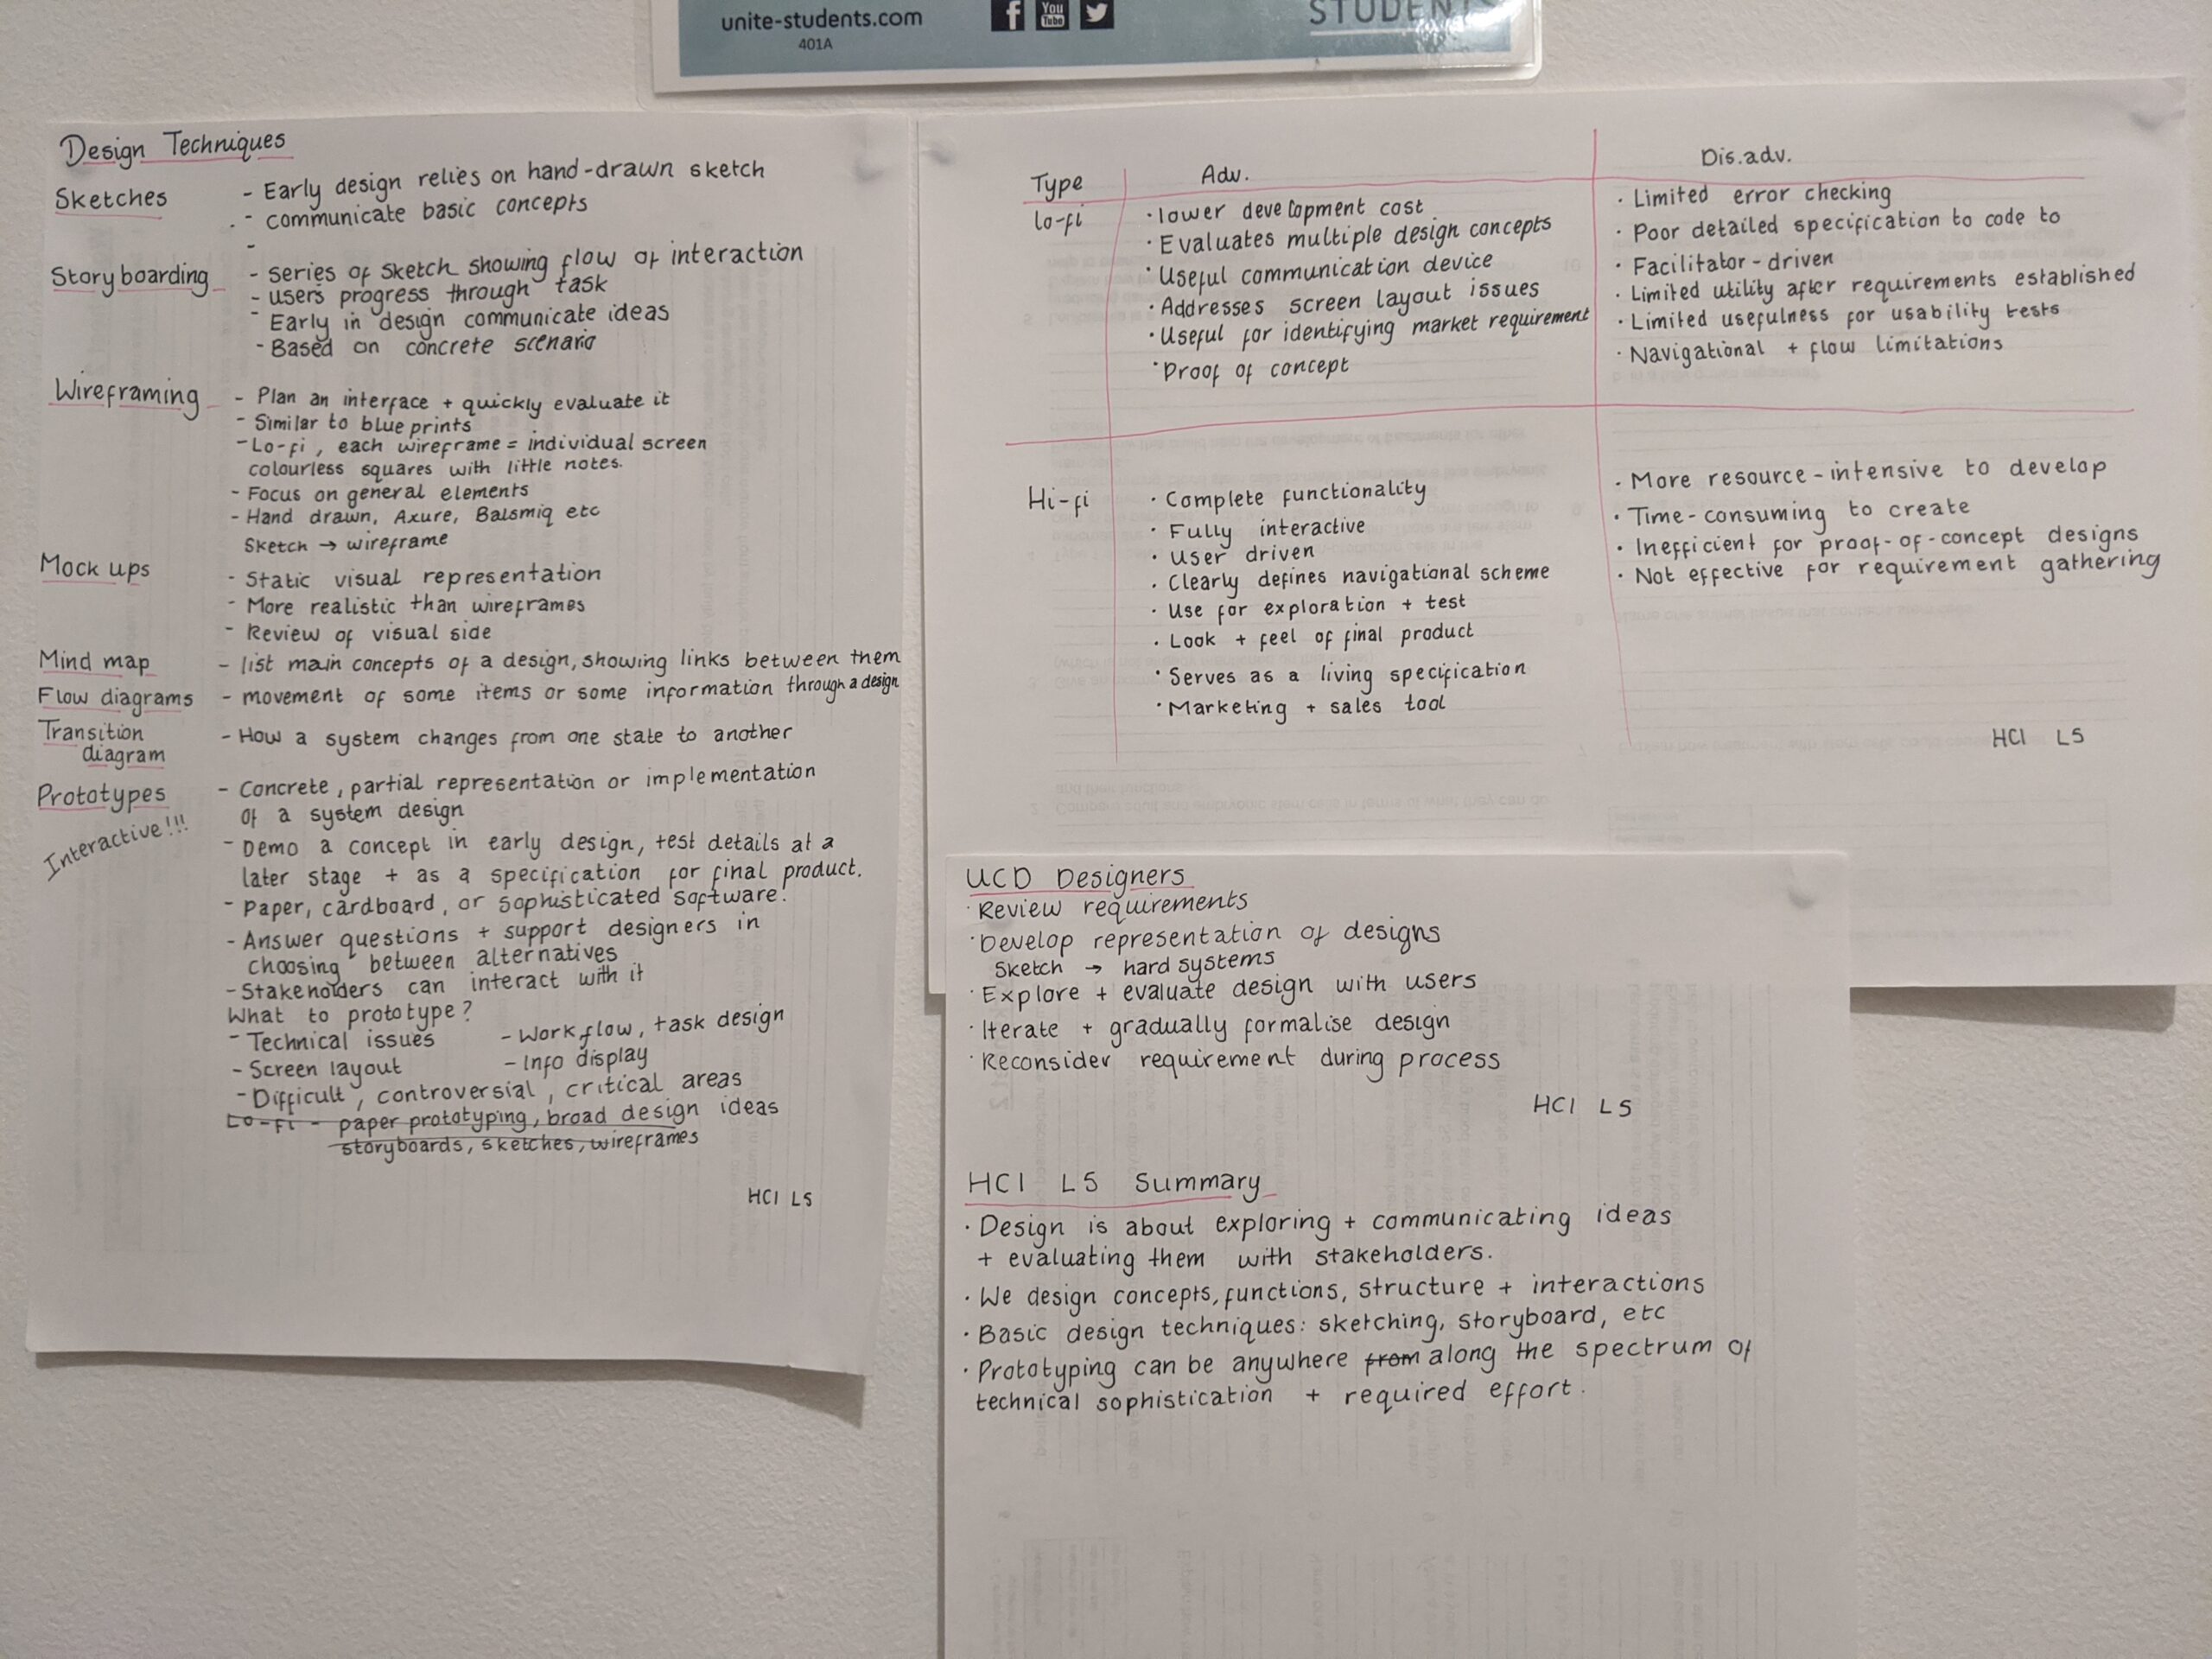 unite-students.com
401A
f
You
Tube
STUDENTS
Design Techniques
Sketches - Early design relies on hand-drawn sketch
- communicate basic concepts
-
Story boarding - series of sketch showing flow of interaction
- users progress through task
- Early in design communicate ideas
- Based on concrete scenario
Wireframing - Plan an interface + quickly evaluate it
- Similar to blue prints
- Lo-fi, each wireframe = individual screen
colourless squares with little notes.
- Focus on general elements
- Hand drawn, Axure, Balsmiq etc
Sketch → wireframe
Mock ups - Static visual representation
- More realistic than wireframes
- Review of visual side
Mind map - list main concepts of a design, showing links between them
Flow diagrams - movement of some items or some information through a design
Transition
diagram - How a system changes from one state to another
Prototypes - Concrete, partial representation or implementation
of a system design
Interactive!!!
- Demo a concept in early design, test details at a
later stage + as a specification for final product.
- Paper, cardboard, or sophisticated software!
- Answer questions + support designers in
choosing between alternatives
- Stakeholders can interact with it
What to prototype?
- Technical issues - Work flow, task design
- Screen layout - Info display
- Difficult, controversial, critical areas
Lo-fi - paper prototyping, broad design ideas
storyboards, sketches, wireframes
HCI L5
Type Adv. Dis.adv.
lo-fi
· lower development cost
· Evaluates multiple design concepts
· Useful communication device
· Addresses screen layout issues
· Useful for identifying market requirement
· Proof of concept
· Limited error checking
· Poor detailed specification to code to
· Facilitator-driven
· Limited utility after requirements established
· Limited usefulness for usability tests
· Navigational + flow limitations
Hi-fi
· Complete functionality
· Fully interactive
· User driven
· Clearly defines navigational scheme
· Use for exploration + test
· Look + feel of final product
· Serves as a living specification
· Marketing + sales tool
· More resource-intensive to develop
· Time-consuming to create
· Inefficient for proof-of-concept designs
· Not effective for requirement gathering
HCI L5
UCD Designers
· Review requirements
· Develop representation of designs
Sketch → hard systems
· Explore + evaluate design with users
· Iterate + gradually formalise design
· Reconsider requirement during process
HCI L5
HCI L5 Summary
· Design is about exploring + communicating ideas
+ evaluating them with stakeholders.
· We design concepts, functions, structure + interactions
· Basic design techniques: sketching, storyboard, etc
· Prototyping can be anywhere from along the spectrum of
technical sophistication + required effort.